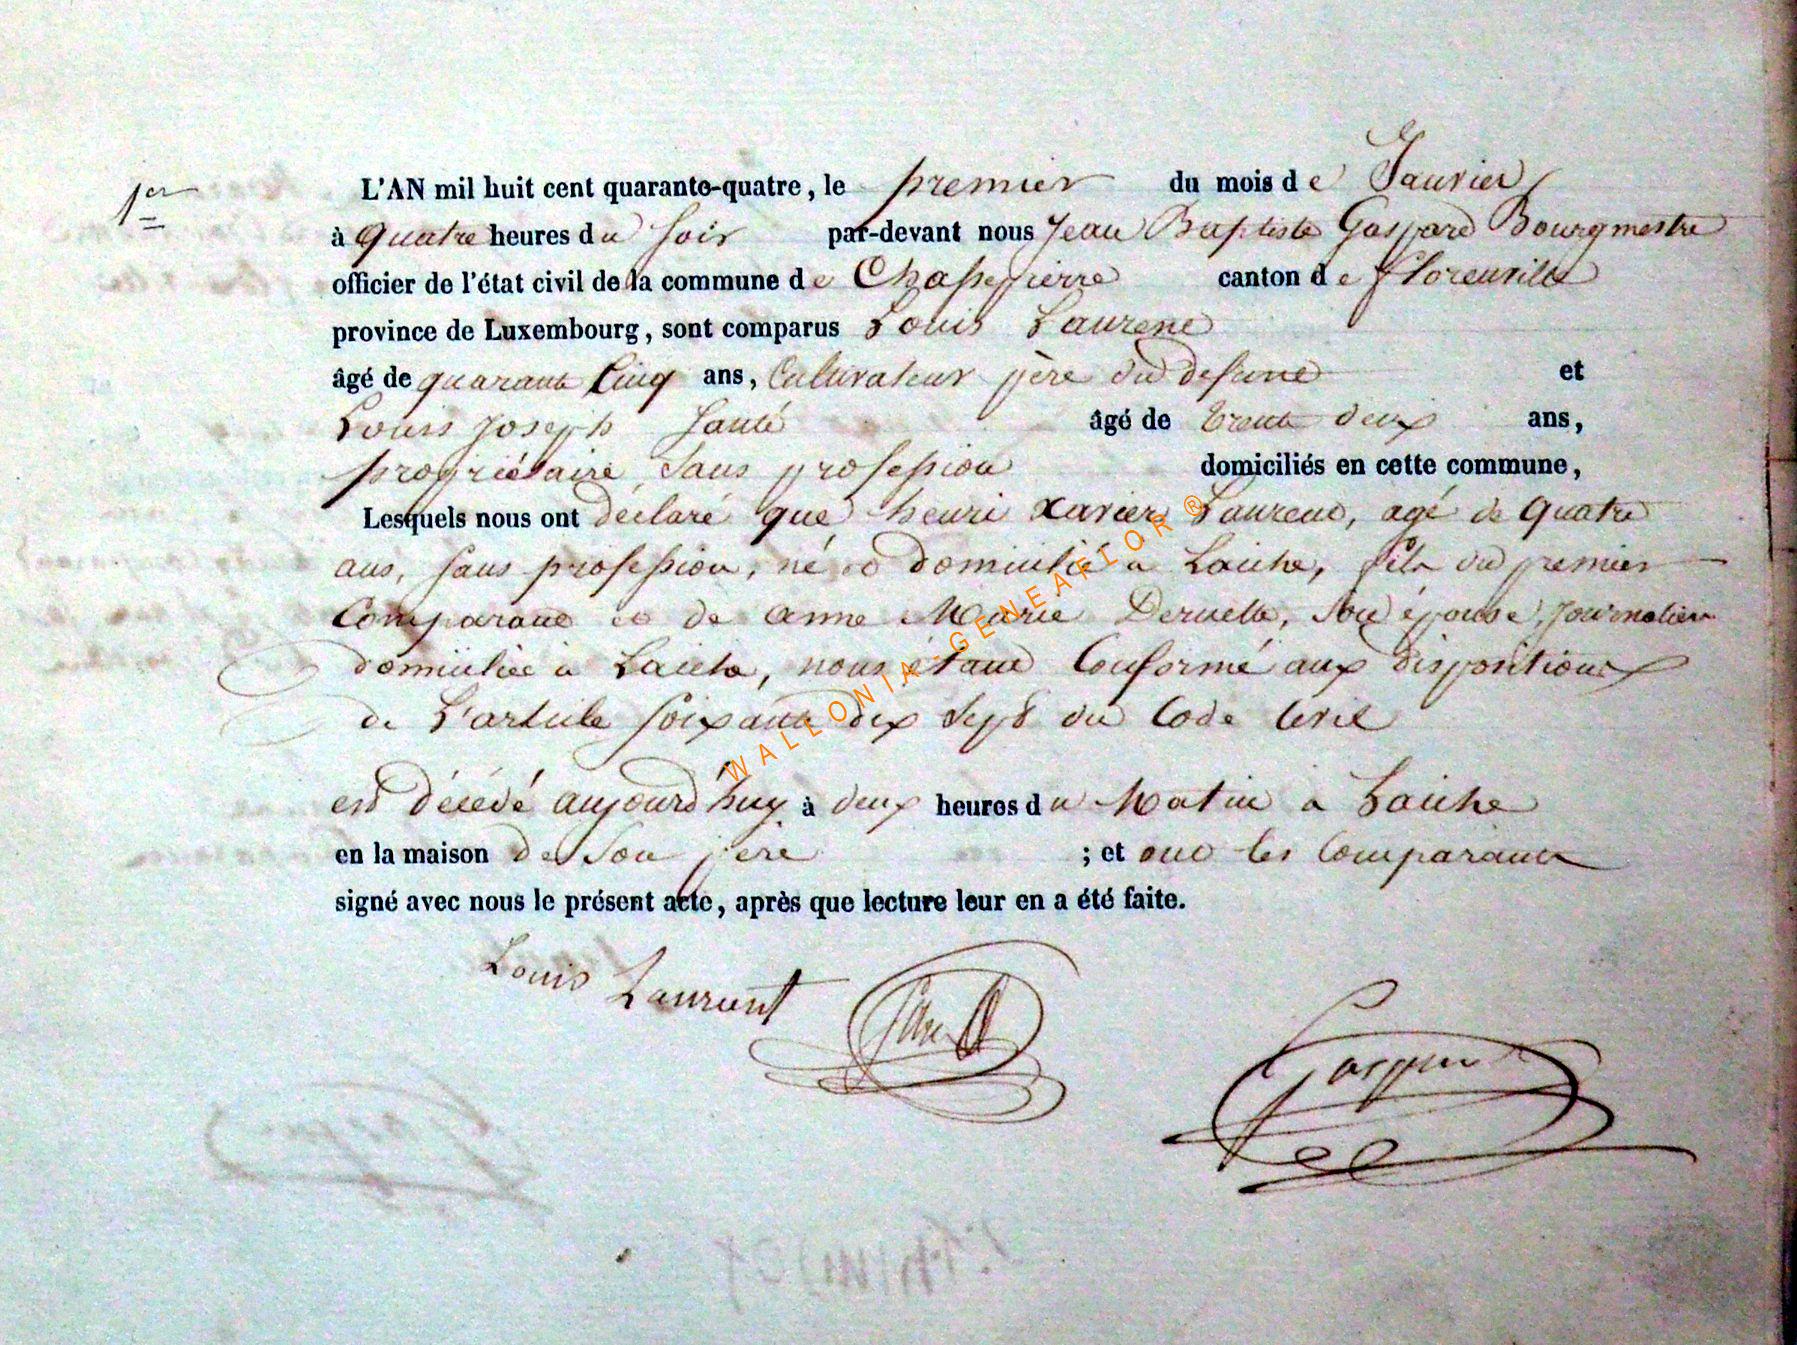 1er
L'AN mil huit cent quarante-quatre, le premier du mois de Janvier
à quatre heures du soir par-devant nous Jean Baptiste Gaspard Bourgmestre
officier de l'état civil de la commune de Chassepierre canton de florenville
province de Luxembourg, sont comparus Louis Laurent
âgé de quarante Cinq ans, Cultivateur père du defunt et
Louis Joseph âgé de trente deux ans,
propriétaire, sans profession domiciliés en cette commune,
Lesquels nous ont déclaré que henri Xavier Laurent, agé de quatre
ans, sans profession, né et domicilié a Laiche, fils du premier
Comparant et de anne Marie Deruette, son épouse, journalière
domiciliée à Laiche, nous étant Conformé aux dispositions
de L'article soixante dix sept du Code Civil
est décédé aujourd'huy à deux heures du Matin a Laiche
en la maison de son père ; et ont les Comparants
signé avec nous le présent acte, après que lecture leur en a été faite.
Louis Laurent
Gaspard
WALLONIA-GENEAFLOR ®